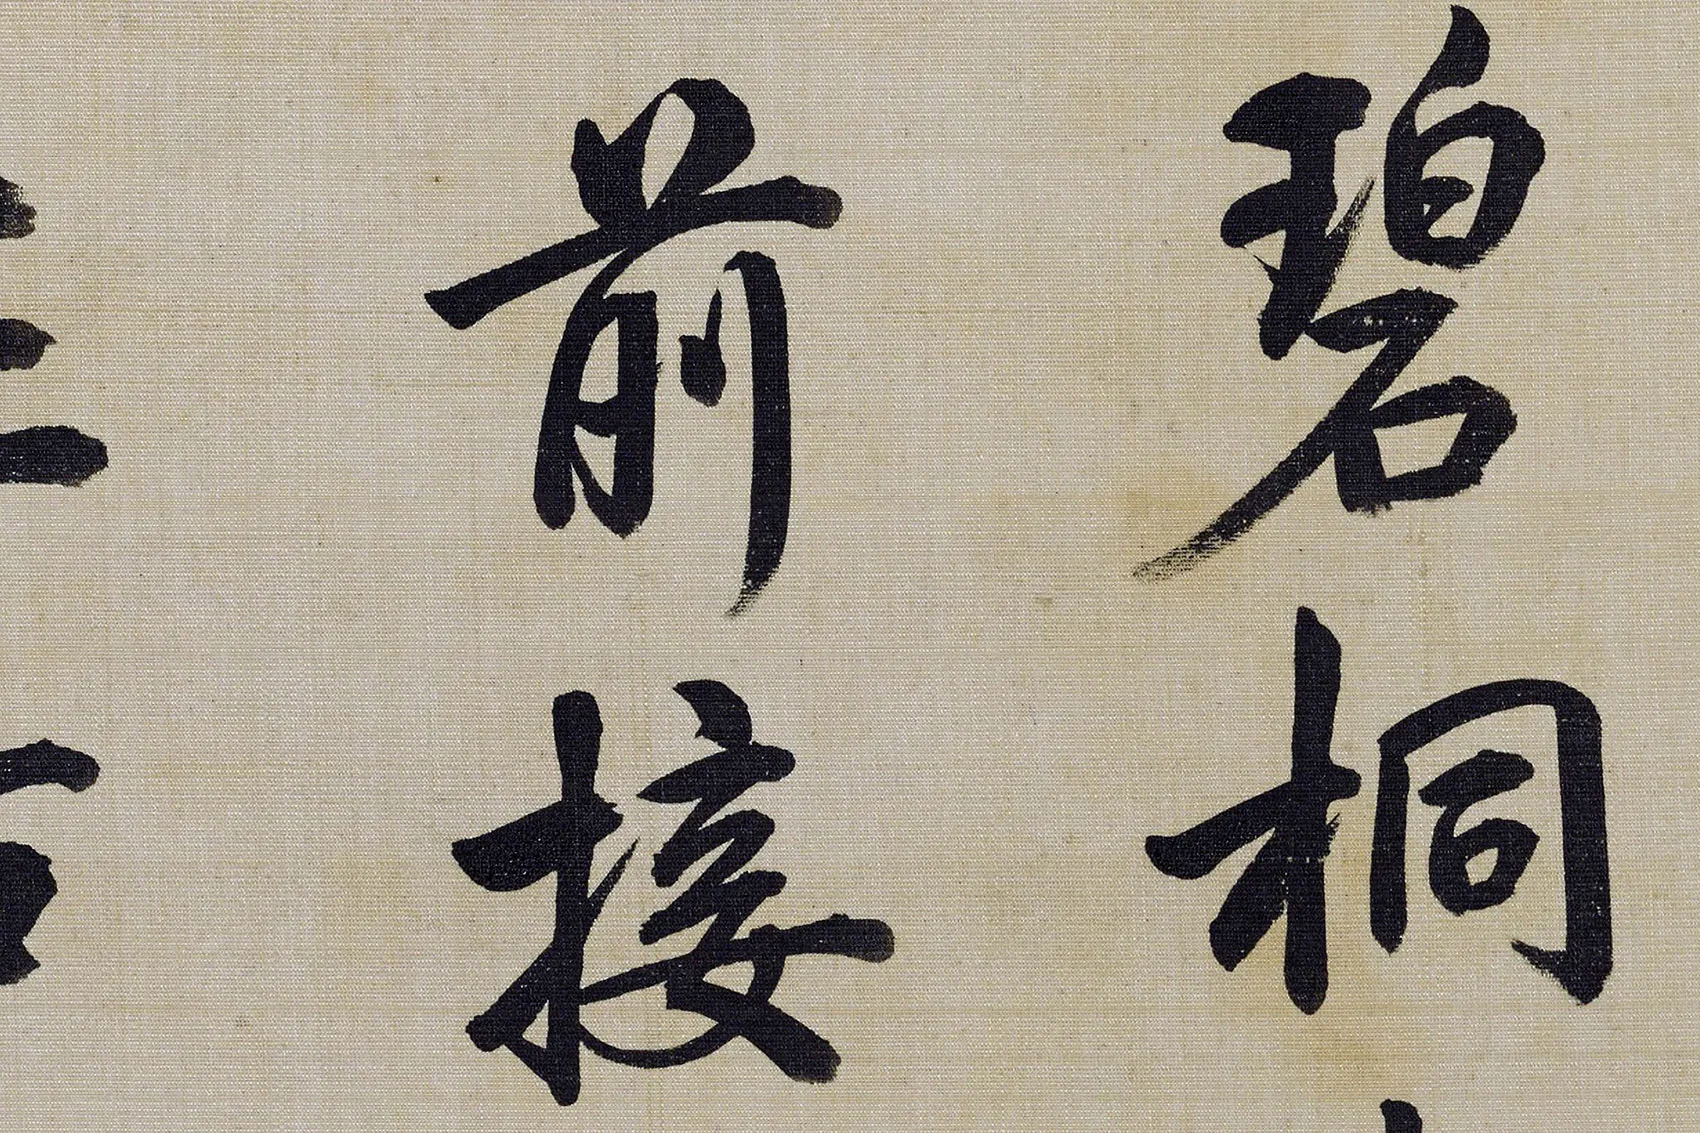 碧桐
前接